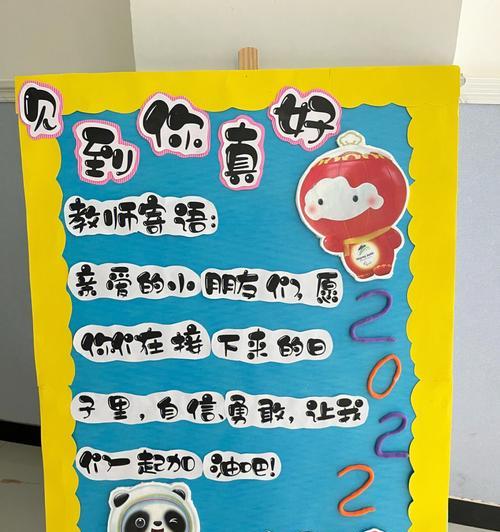 见到你真好
教师寄语:
亲爱的小朋友们,愿
你们在接下来的日
子里,自信、勇敢,让我
们一起加油吧!
2022